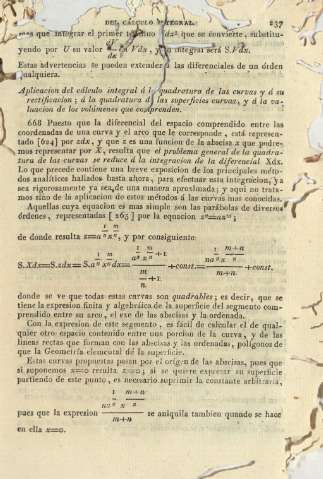 DEL CÁLCULO INTEGRAL. 237
mas que integrar el primer término dx² que se convierte, substitu-
yendo por U su valor en Vdx, y su integral será S.Vdx.
Estas advertencias se pueden extender á las diferenciales de un órden
qualquiera.
Aplicacion del cálculo integral á la quadratura de las curvas y á su
rectificacion; á la quadratura de las superficies curvas, y á la va-
luacion de los volúmenes que comprenden.
668 Puesto que la diferencial del espacio comprendido entre las
coordenadas de una curva y el arco que le corresponde, está represen-
tado [624] por zdx, y que z es una funcion de la abscisa x que pode-
mos representar por X, resulta que el problema general de la quadra-
tura de las curvas se reduce á la integracion de la diferencial Xdx.
Lo que precede contiene una breve exposicion de los principales méto-
dos analíticos hallados hasta ahora, para efectuar esta integracion, ya
sea rigurosamente ya sea de una manera aproximada; y aquí no trata-
mos sino de la aplicacion de estos métodos á las curvas mas conocidas.
Aquellas cuya equacion es mas simple son las parábolas de diversos
órdenes, representadas [263] por la equacion zⁿ=axᵐ;
de donde resulta z=a^(1/n) x^(m/n), y por consiguiente
S.Xdx=S.zdx=S.a^(1/n) x^(m/n) dx= a^(1/n) x^(m/n +1) / (m/n +1) +const.= na^(1/n) x^((m+n)/n) / (m+n) +const.
donde se ve que todas estas curvas son quadrables; es decir, que se
tiene la expresion finita y algebráica de la superficie del segmento com-
prendido entre su arco, el exe de las abscisas y la ordenada.
Con la expresion de este segmento, es fácil de calcular el de qual-
quier otro espacio contenido entre una porcion de la curva, y de las
líneas rectas que forman con las abscisas y las ordenadas, polígonos de
que la Geometría elemental dé la superficie.
Estas curvas propuestas pasan por el orígen de las abscisas, pues que
si suponemos x=0 resulta z=0; si se quiere expresar su superficie
partiendo de este punto, es necesario suprimir la constante arbitraria,
pues que la expresion na^(1/n) x^((m+n)/n) / (m+n) se aniquila tambien quando se hace
en ella x=0.